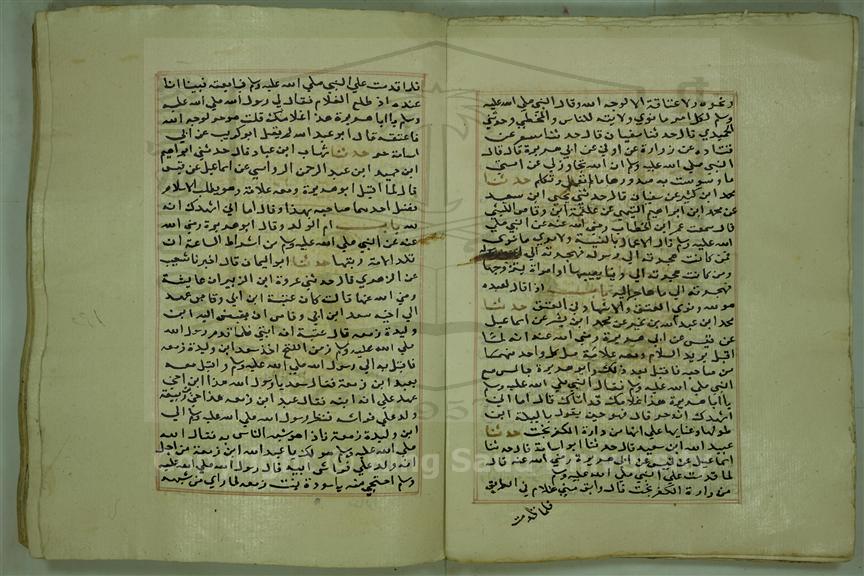 ونحوه ولا عتاقة الا لوجه الله وقال النبي صلي الله عليه
وسلم لكل امرء ما نوي ولا نيته للناس والمخطي حدثني
الحميدي قال حدثنا سفيان قال حدثنا مسعر عن
قتاده عن زرارة عن اوفي عن ابي هريرة قال قال
النبي صلي الله عليه وسلم ان الله تجاوز لي عن امتي
ما وسوست به صدورها ما لم تعمل او تتكلم حدثنا
محمد ابن كثير عن سفيان قال حدثني يحيي ابن سعيد
عن محمد ابن ابراهيم التيمي عن علقمة ابن وقاص الليثي
قال سمعت عمر ابن الخطاب رضي الله عنه عن النبي صلي
الله عليه وسلم قال الاعمال بالنية ولامري ما نوي
فمن كانت هجرته الي الله ورسوله فهجرته الي الله ورسوله
ومن كانت هجرته الي دنيا يصيبها او امراة يتزوجها
فهجرته الي ما هاجر اليه باب اذا قال لعبده
هو لله ونوي العتق والاشهاد في العتق حدثنا
محمد ابن عبد الله بن نمير عن محمد ابن بشر عن اسماعيل
عن قيس عن ابي هريرة رضي الله عنه انه لما
اقبل يريد الاسلام ومعه غلامه ضل كل واحد منهما
من صاحبه فاقبل بعد ذلك وابو هريرة جالس مع
النبي صلي الله عليه وسلم فقال النبي صلي الله عليه وسلم
يا ابا هريرة هذا غلامك قد اتاك قال اما اني
اشهدك انه حر قال فهو حين يقول يا ليلة من
طولها وعنايها علي انها من دارة الكفر نجت حدثنا
عبيد الله ابن سعيد قال حدثنا ابو اسامة قال حدثنا
اسماعيل عن قيس عن ابي هريرة رضي الله عنه قال
لما قدمت علي النبي صلي الله عليه وسلم
من دارة الكفر نجت قال وابق مني غلام في الطريق
فلما قدمت
فلما قدمت علي النبي صلي الله عليه وسلم فبايعته فبينا انا
عنده اذ طلع الغلام فقال لي رسول الله صلي الله عليه
وسلم يا ابا هريرة هذا غلامك قلت هو حر لوجه الله
فاعتقه قال ابو عبد الله لم يقل ابو كريب عن ابي
اسامة حر حدثنا شهاب ابن عباد قال حدثني ابراهيم
ابن حميد ابن عبد الرحمن الرواسي عن اسماعيل عن قيس
قال لما اقبل ابو هريرة ومعه غلامه وهو يطلب الاسلام
فضل احدهما صاحبه بهذا وقال اما اني اشهدك انه
لله باب ام الولد وقال ابو هريرة رضي الله
عنه عن النبي صلي الله عليه وسلم من اشراط الساعة ان
تلد الامة ربتها حدثنا ابو اليمان قال اخبرنا شعيب
عن الزهري قال حدثني عروة ابن الزبير ان عايشة
رضي الله عنها قالت كان عتبة ابن ابي وقاص عهد
الي اخيه سعد ابن ابي وقاص ان يقبض اليه ابن
وليدة زمعه قال عتبة انه ابني فلما قدم رسول الله
صلي الله عليه وسلم زمن الفتح اخذ سعد ابن وليدة زمعه
فاقبل به الي رسول الله صلي الله عليه وسلم واقبل معه
بعبد ابن زمعة فقال سعد يا رسول الله هذا ابن اخي
عهد علي انه ابنه فقال عبد ابن زمعه هذا اخي
ولد علي فراشه فنظر رسول الله صلي الله عليه وسلم الي
ابن وليدة زمعة فاذا هو شبه الناس به فقال الله
صلي الله عليه وسلم هو لك يا عبد الله ابن زمعة من اجل
انه ولد علي فراش ابيه قال رسول الله صلي الله عليه
وسلم احتجبي منه يا سودة بنت زمعه لما راي من شبهه